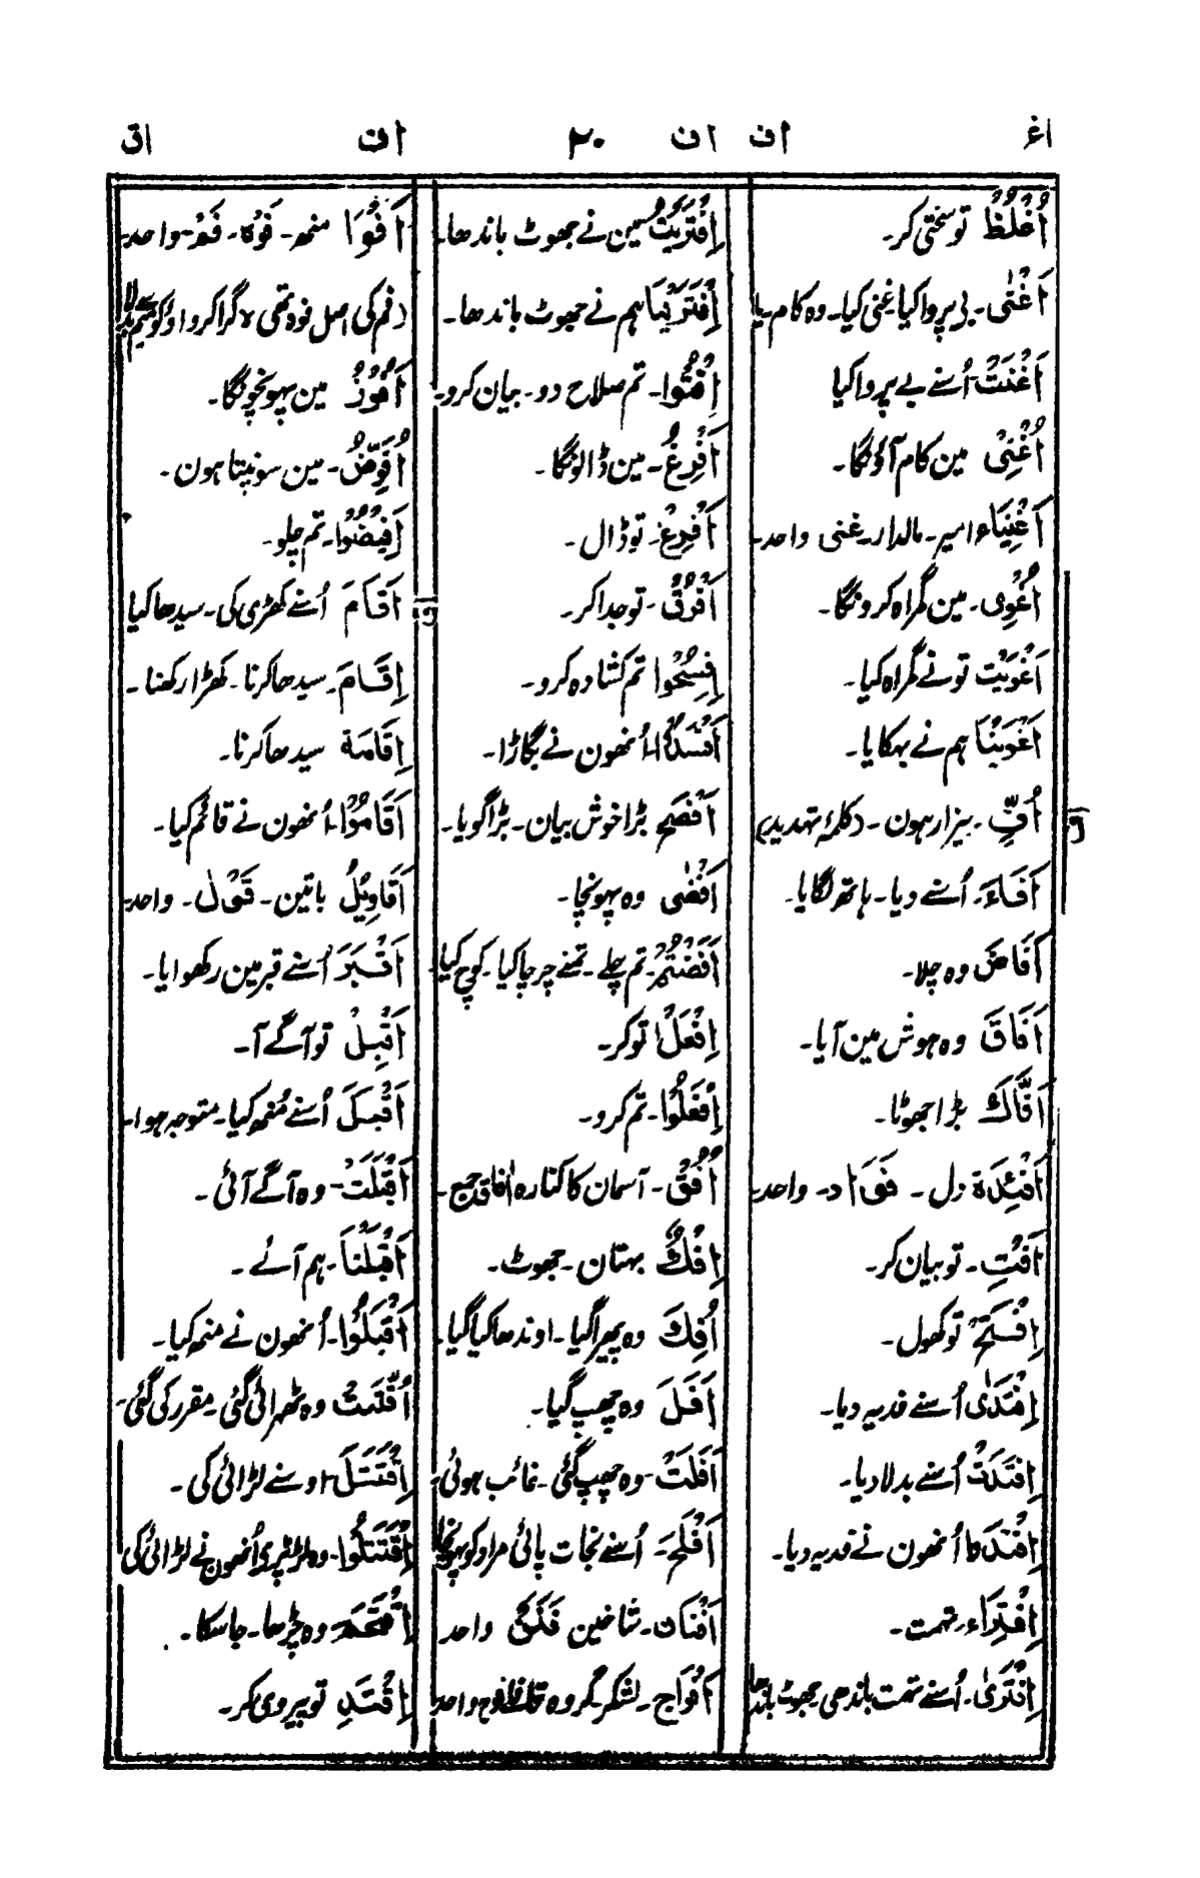 اغ اف ۲۰ اف اف اق
اُغْلُظْ تو سختی کر۔
اَغْنٰی۔ بی پروا کیا غنی کیا۔ وہ کام۔ یا
اَغْنَتْ۔ اُسنے بے پروا کیا
اُغْنِیْ مین کام آؤنگا۔
اَغْنِیَاء امیر۔ مالدار۔ غنی واحد۔
اُغْوِی۔ مین گمراہ کرونگا۔
اَغْوَیْتَ تو نے گمراہ کیا۔
اَغْوَیْنَا ہم نے بہکایا۔
اُفٍّ۔ بیزار ہون۔ (کلمۂ تہدید)
اَفَاءَ۔ اُسنے دیا۔ ہاتھ لگایا۔
اَفَاضَ وہ چلا۔
اَفَاقَ وہ ہوش مین آیا۔
اَفَّاكَ بڑا جھوٹا۔
اَفْئِدَة دل۔ فَؤَاد۔ واحد۔
اَفْتِ۔ تو بیان کر۔
اِفْتَحْ تو کھول۔
اِفْتَدٰی اُسنے فدیہ دیا۔
اِفْتَدَتْ اُسنے بدلا دیا۔
اِفْتَدَوْا اُنھون نے فدیہ دیا۔
اِفْتِرَاء۔ تہمت۔
اِفْتَرٰی۔ اُسنے تہمت باندھی جھوٹ باندھا
اِفْتَرَیْتُ مین نے جھوٹ باندھا۔
اِفْتَرَیْنَا ہم نے جھوٹ باندھا۔
اَفْتُوا۔ تم صلاح دو۔ بیان کرو۔
اُفْرِغْ۔ مین ڈالونگا۔
اَفْرِغْ۔ تو ڈال۔
اُفْرُقْ۔ تو جدا کر۔
اِفْسَحُوا تم کشادہ کرو۔
اَفْسَدُوْا۔ اُنھون نے بگاڑا۔
اَفْصَح بڑا خوش بیان۔ بڑا گویا۔
اَفْضٰی وہ پہونچا۔
اَفَضْتُمْ۔ تم چلے۔ تمنے چرچا کیا۔ کوچ کیا۔
اِفْعَلْ تو کر۔
اِفْعَلُوْا۔ تم کرو۔
اُفُقْ۔ آسمان کا کنارہ اٰفاق جمع۔
اِفْكٌ بہتان۔ جھوٹ۔
اُفِكَ وہ پھیرا گیا۔ اوندھا کیا گیا۔
اَفَلَ وہ چھپ گیا۔
اَفَلَتْ۔ وہ چھپ گئی۔ غائب ہوئی۔
اَفْلَحَ۔ اُسنے نجات پائی مراد کو پہونچا
اَفْنَان۔ شاخین فَنَنٌ واحد
اَفْوَاج۔ لشکر۔ گروہ فوج واحد
اَفْوَا منھ۔ فَوْہ۔ فَمْ۔ واحد۔
(فم کی اصل فوہ تھی ہ گرا کر واو کو میم
اَفُوْزُ مین پہونچونگا۔
اُفَوِّضُ۔ مین سونپتا ہون۔
اَفِیْضُوْا۔ تم چلو۔
اَقَامَ اُسنے کھڑی کی۔ سیدھا کیا
اِقَامَ۔ سیدھا کرنا۔ کھڑا رکھنا۔
اِقَامَة سیدھا کرنا۔
اَقَامُوْا۔ اُنھون نے قائم کیا۔
اَقَاوِیْلُ باتین۔ قَوْل۔ واحد۔
اَقْبَرَ اُسنے قبر مین رکھوایا۔
اَقْبِلْ تو آگے آ۔
اَقْبَلَ اُسنے مُنھ کیا۔ متوجہ ہوا۔
اَقْبَلَتْ۔ وہ آگے آئی۔
اَقْبَلْنَا۔ ہم آئے۔
اَقْبَلُوْا۔ اُنھون نے منھ کیا۔
اُقِّتَتْ وہ ٹھہرائی گئی۔ مقرر کی گئی۔
اِقْتَتَلَ۔ اوسنے لڑائی کی۔
اِقْتَتَلُوْا۔ وہ لڑ پڑے اُنھون نے لڑائی کی
اِقْتَحَمَ۔ وہ چڑھا۔ جا سکا۔
اِقْتَدِ تو پیروی کر۔